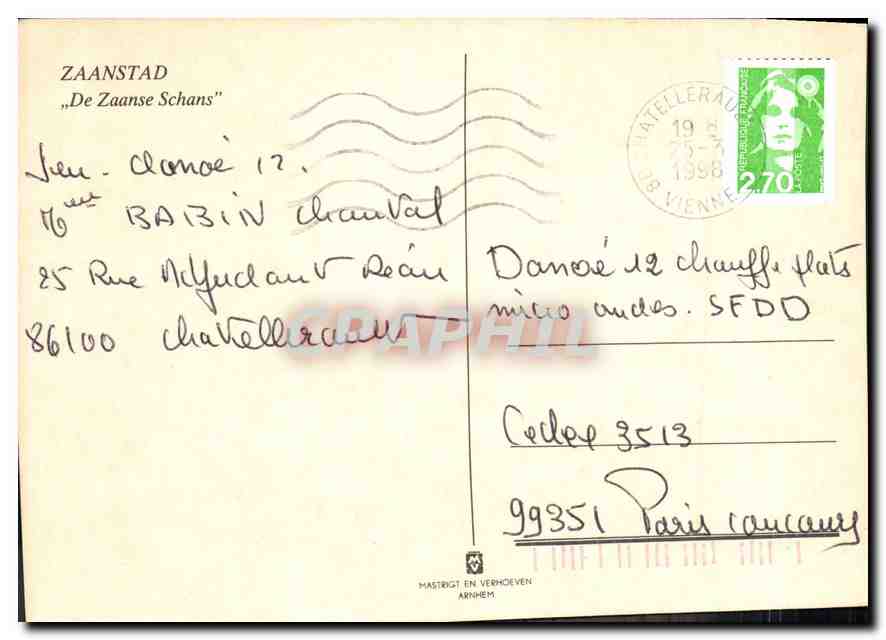 ZAANSTAD
„De Zaanse Schans”
Jeu. Danoé 12.
Mme BABIN Chantal
25 Rue
86100 Chatellerault
CPAPHIL
CHATELLERAULT
19 H
25-3
1998
86 VIENNE
REPUBLIQUE FRANÇAISE
LA POSTE
2.70
Danoé 12 chauffe plats
micro ondes. SFDD
Cedex 3513
99351 Paris concours
MASTRIGT EN VERHOEVEN
ARNHEM